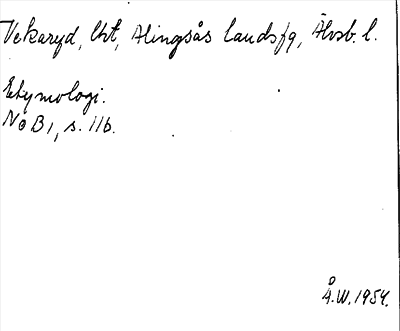 Vekaryd, Chrt, Alingsås landsfg, Älvsb. l.
Etymologi.
NoB 1, s. 116.
Å.W. 1954.